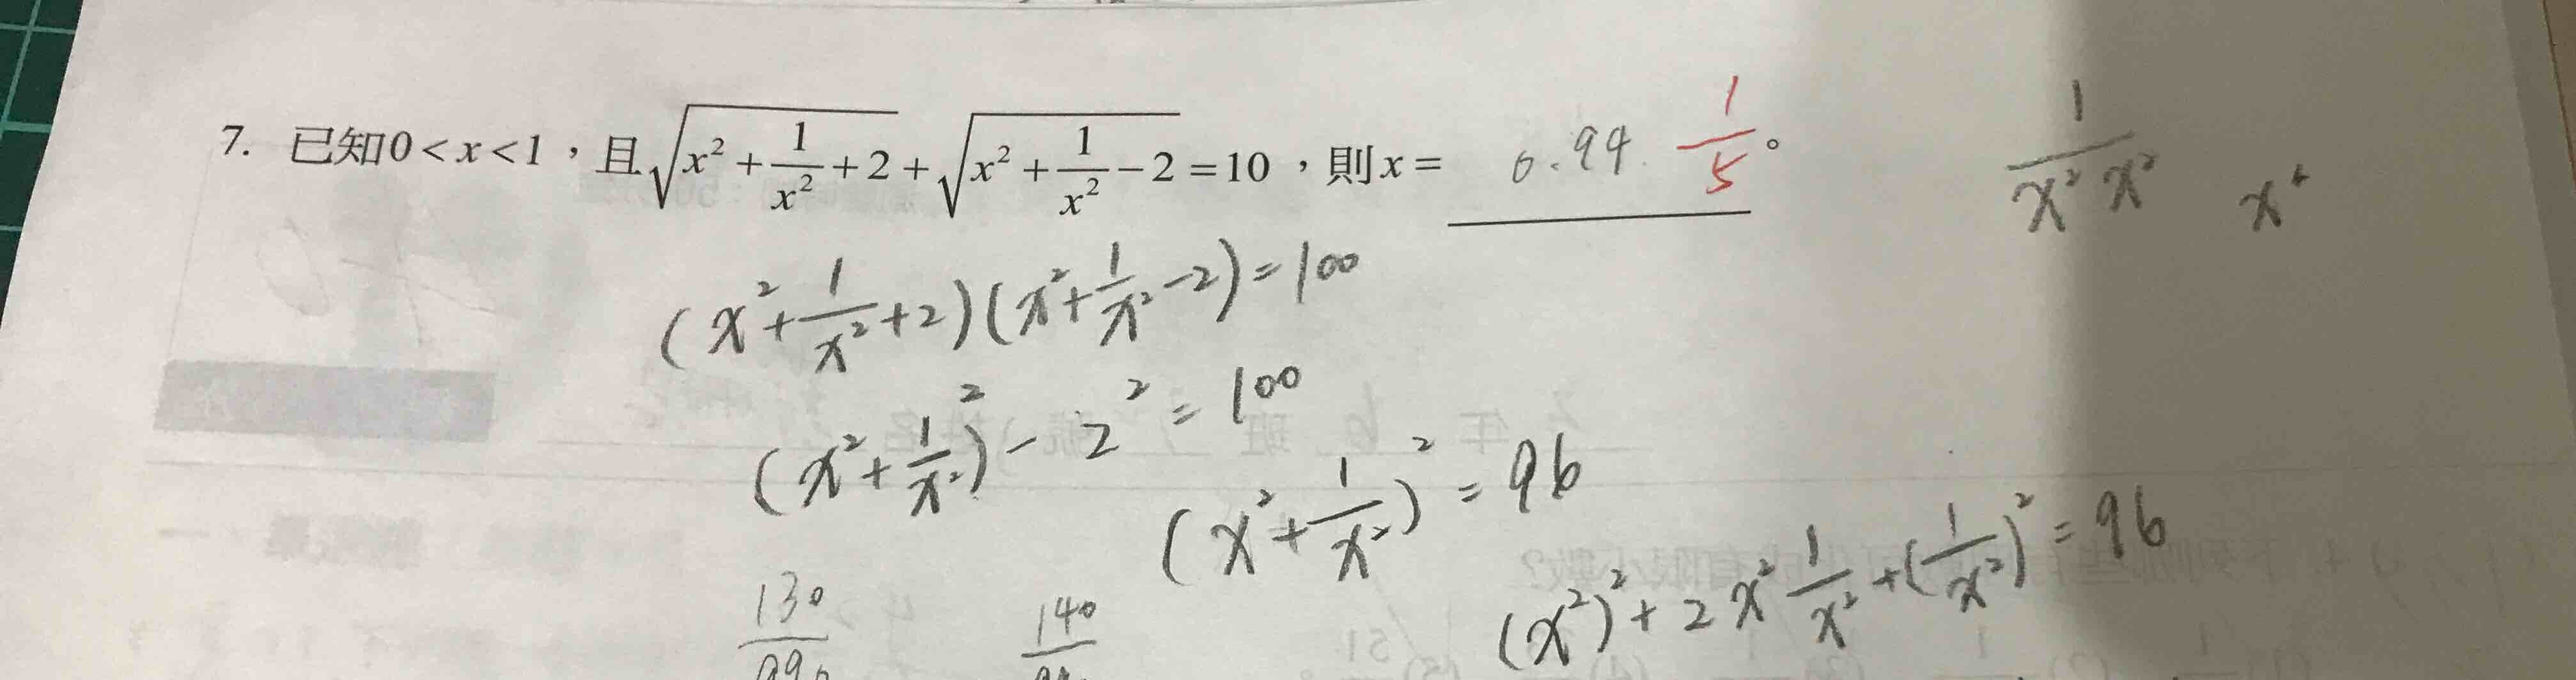 7. 已知0<x<1，且√(x²+1/x²+2)+√(x²+1/x²-2)=10，則x= 0.94 1/5。
1/(x² x²) x⁴
(x²+1/x²+2)(x²+1/x²-2)=100
(x²+1/x²)²-2²=100
(x²+1/x²)²=96
(x²)²+2x² 1/x²+(1/x²)²=96
130
140